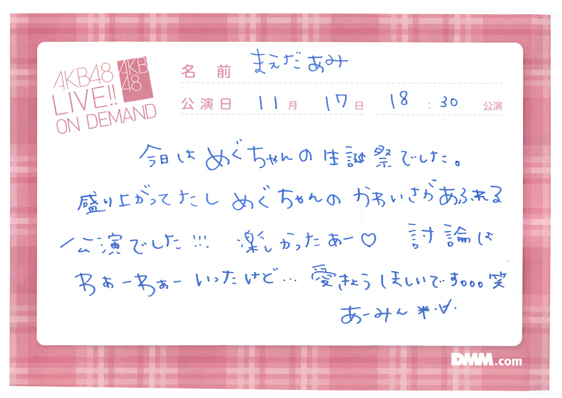 AKB48
LIVE!!
ON DEMAND
AKB
48
名前 まえだあみ
公演日 11月 17日 18:30 公演
今日は めぐちゃんの 生誕祭でした。
盛り上がってたし めぐちゃんの かわいさがあふれる
公演でした!!! 楽しかったあー♡ 討論は
わぁーわぁー いったけど… 愛きょう ほしいです。。。笑
あーみん
DMM.com